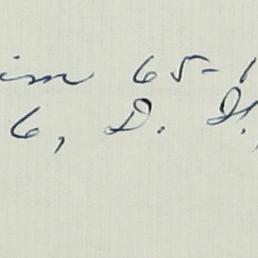 im 65-1
6, D. H.